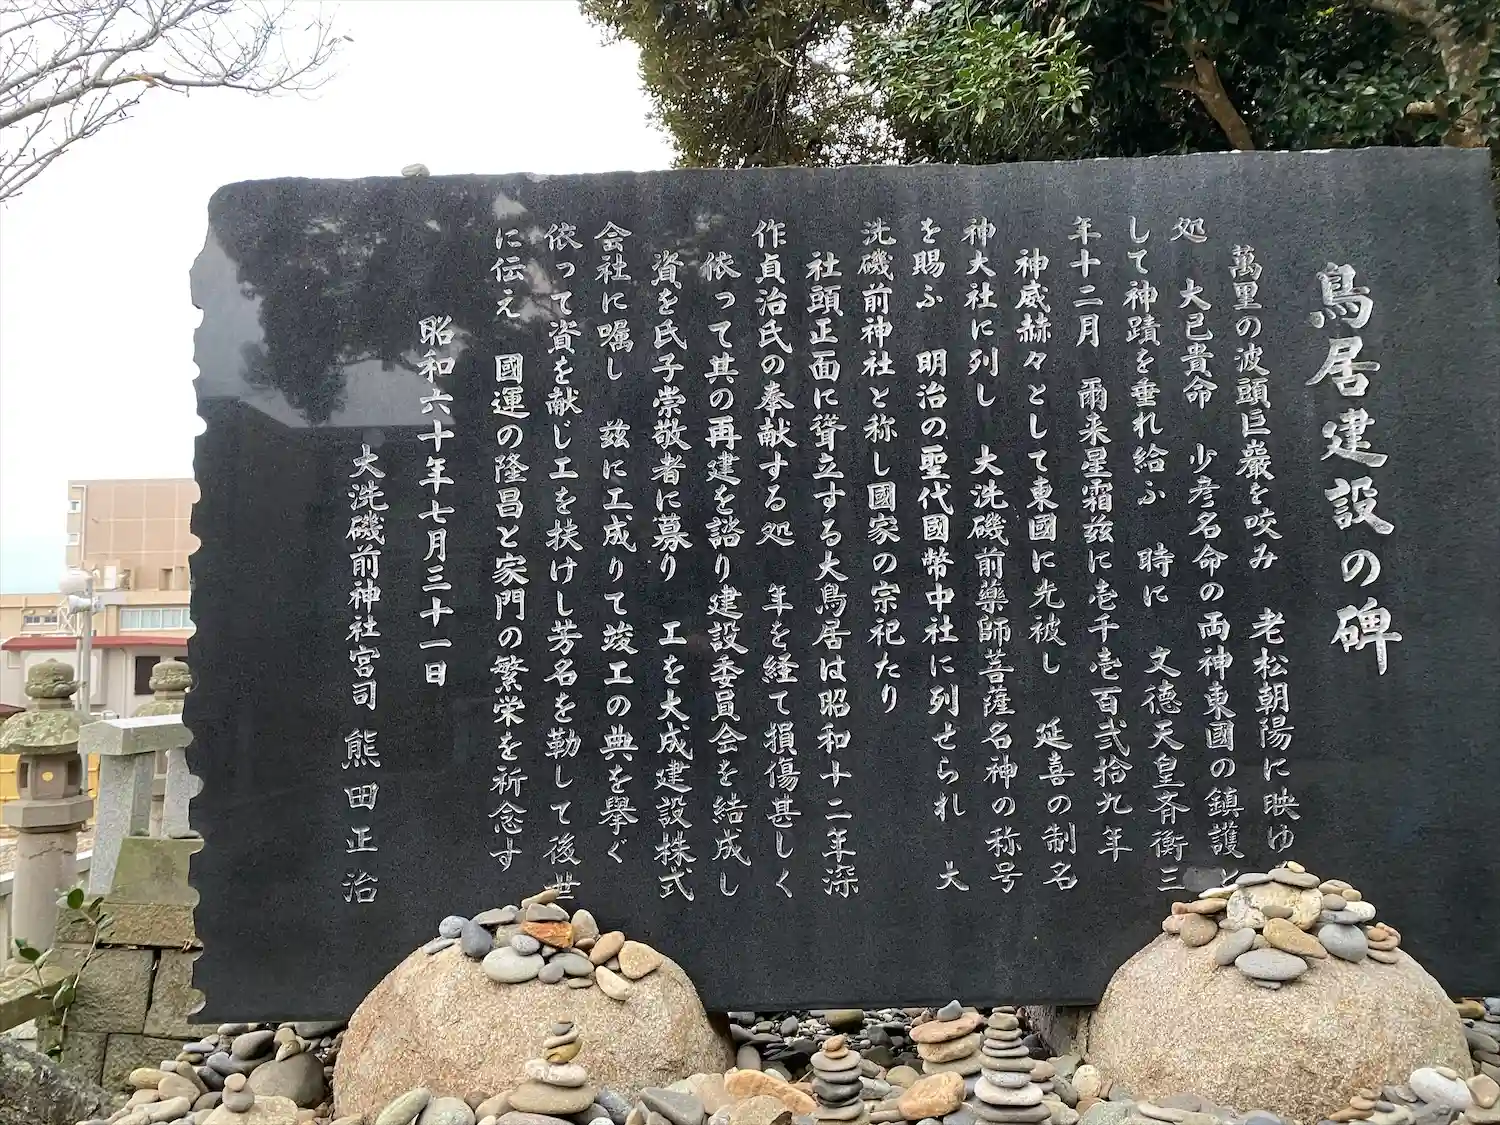 鳥居建設の碑
萬里の波頭巨巌を咬み　老松朝陽に映ゆ
処　大己貴命　少彦名命の両神東國の鎮護と
して神蹟を垂れ給ふ　時に　文徳天皇斉衡三
年十二月　爾来星霜茲に壱千壱百弐拾九年
神威赫々として東國に光被し　延喜の制名
神大社に列し　大洗磯前藥師菩薩名神の称号
を賜ふ　明治の聖代國幣中社に列せられ　大
洗磯前神社と称し國家の宗祀たり
社頭正面に聳立する大鳥居は昭和十二年深
作貞治氏の奉献する処　年を経て損傷甚しく
依って其の再建を諮り建設委員会を結成し
資を氏子崇敬者に募り　工を大成建設株式
会社に嘱し　茲に工成りて竣工の典を擧ぐ
依って資を献じ工を扶けし芳名を勒して後世
に伝え　國運の隆昌と家門の繁栄を祈念す
昭和六十年七月三十一日
大洗磯前神社宮司　熊田正治